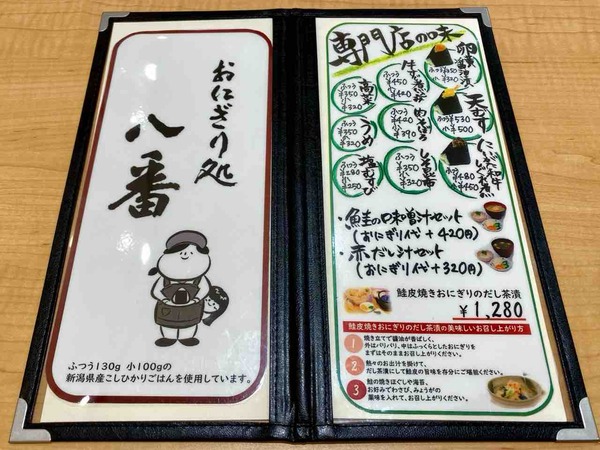 おにぎり処
八番
ふつう130g 小100gの
新潟県産こしひかりごはんを使用しています。
専門店の味
卵黄醤油漬
ふつう¥350
小¥320
牛すじ煮込
ふつう¥450
小¥420
高菜
ふつう¥350
小¥320
天むす
ふつう¥530
小¥500
肉そぼろ
ふつう¥420
小¥390
うめ
ふつう¥350
小¥320
ふつう¥480
小¥450
しそ昆布
ふつう¥350
小¥320
塩むすび
ふつう¥280
小¥250
・鮭の味噌汁セット
(おにぎり代+420円)
・赤だし汁セット
(おにぎり代+320円)
鮭皮焼きおにぎりのだし茶漬
¥1,280
鮭皮焼きおにぎりのだし茶漬の美味しいお召し上がり方
1 焼き立てで醤油が香ばしく、
外はパリパリ、中はふっくらとしたおにぎりを
まずはそのままお召し上がりください。
2 熱々のお出汁を掛けて、
だし茶漬にして鮭皮の旨味を存分にご堪能ください。
3 鮭の焼きほぐしや海苔、
お好みでわさび、みょうがの
薬味を入れて、お召し上がりください。